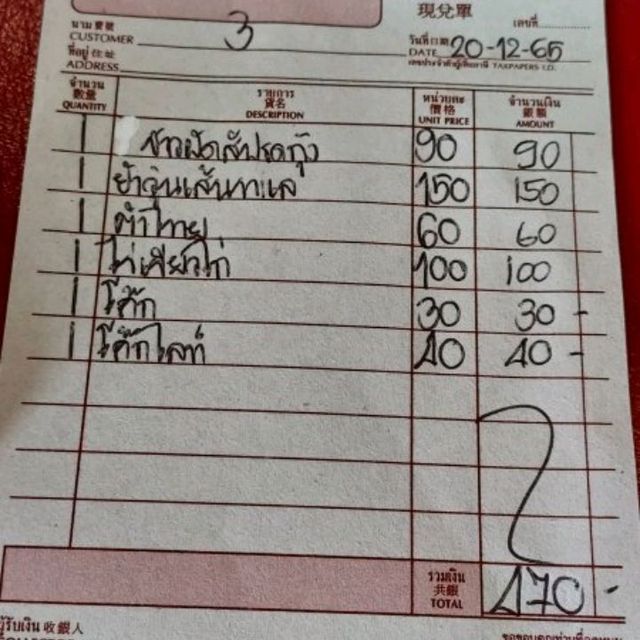 現兌單
นาม 寶號
CUSTOMER 3 เลขที่
ที่อยู่ 住址 วันที่ 日期 20-12-65
ADDRESS DATE เลขประจำตัวผู้เสียภาษี TAXPAPERS I.D.
จำนวน รายการ หน่วยละ จำนวนเงิน
數量 貨名 價格 銀額
QUANTITY DESCRIPTION UNIT PRICE AMOUNT
1 ข้าวผัดสัปรดกุ้ง 90 90
1 ยำวุ้นเส้นทะเล 150 150
1 ตำไทย 60 60
1 100 100
1 โค้ก 30 30 -
1 โค้กไลท์ 40 40 -
รวมเงิน
共銀
TOTAL 470 -
ผู้รับเงิน 收銀人